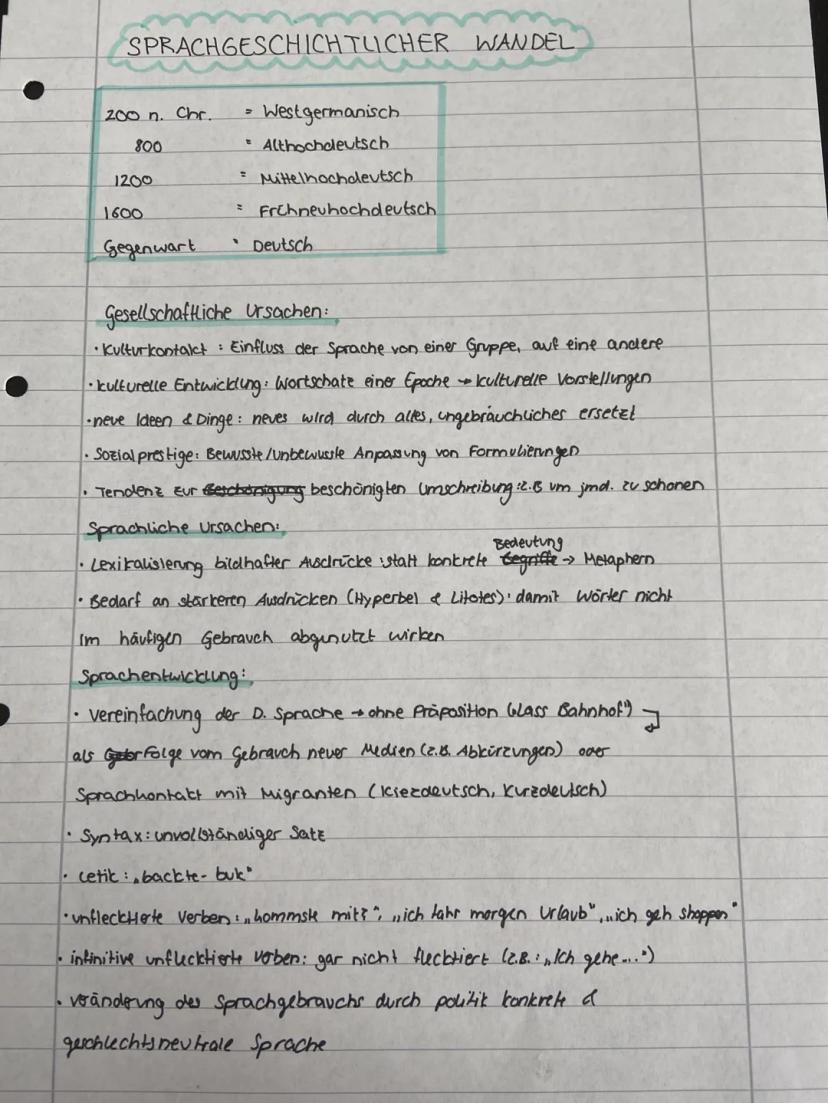 SPRACHGESCHICHTLICHER WANDEL
200 n. Chr. = Westgermanisch
800 = Althochdeutsch
1200 = Mittelhochdeutsch
1600 = Frühneuhochdeutsch
Gegenwart = Deutsch
Gesellschaftliche Ursachen:
· Kulturkontakt : Einfluss der Sprache von einer Gruppe, auf eine andere
· kulturelle Entwicklung: Wortschatz einer Epoche → kulturelle Vorstellungen
· neue Ideen & Dinge : neues wird durch altes, ungebräuchliches ersetzt
· Sozialprestige: Bewusste/unbewusste Anpassung von Formulierungen
· Tendenz zur Beschönigung beschönigten Umschreibung: z.B um jmd. zu schonen
Sprachliche Ursachen:
Bedeutung
· Lexikalisierung bildhafter Ausdrücke : statt konkrete Begriffe → Metaphern
· Bedarf an stärkeren Ausdrücken (Hyperbel & Litotes): damit Wörter nicht
im häufigen Gebrauch abgenutzt wirken
Sprachentwicklung:
· Vereinfachung der D. Sprache → ohne Präposition („lass Bahnhof")
als Folge vom Gebrauch neuer Medien (z.B. Abkürzungen) oder
Sprachkontakt mit Migranten (Kiezdeutsch, Kurzdeutsch)
· Syntax: unvollständiger Satz
· : „backte- buk"
· unflecktierte Verben: „kommste mit?", „ich fahr morgen Urlaub", „ich geh shoppen"
· infinitive unflecktierte Verben: gar nicht flecktiert (z.B.: „Ich gehe...")
· Veränderung des Sprachgebrauchs durch politik konkrete &
geschlechtsneutrale Sprache